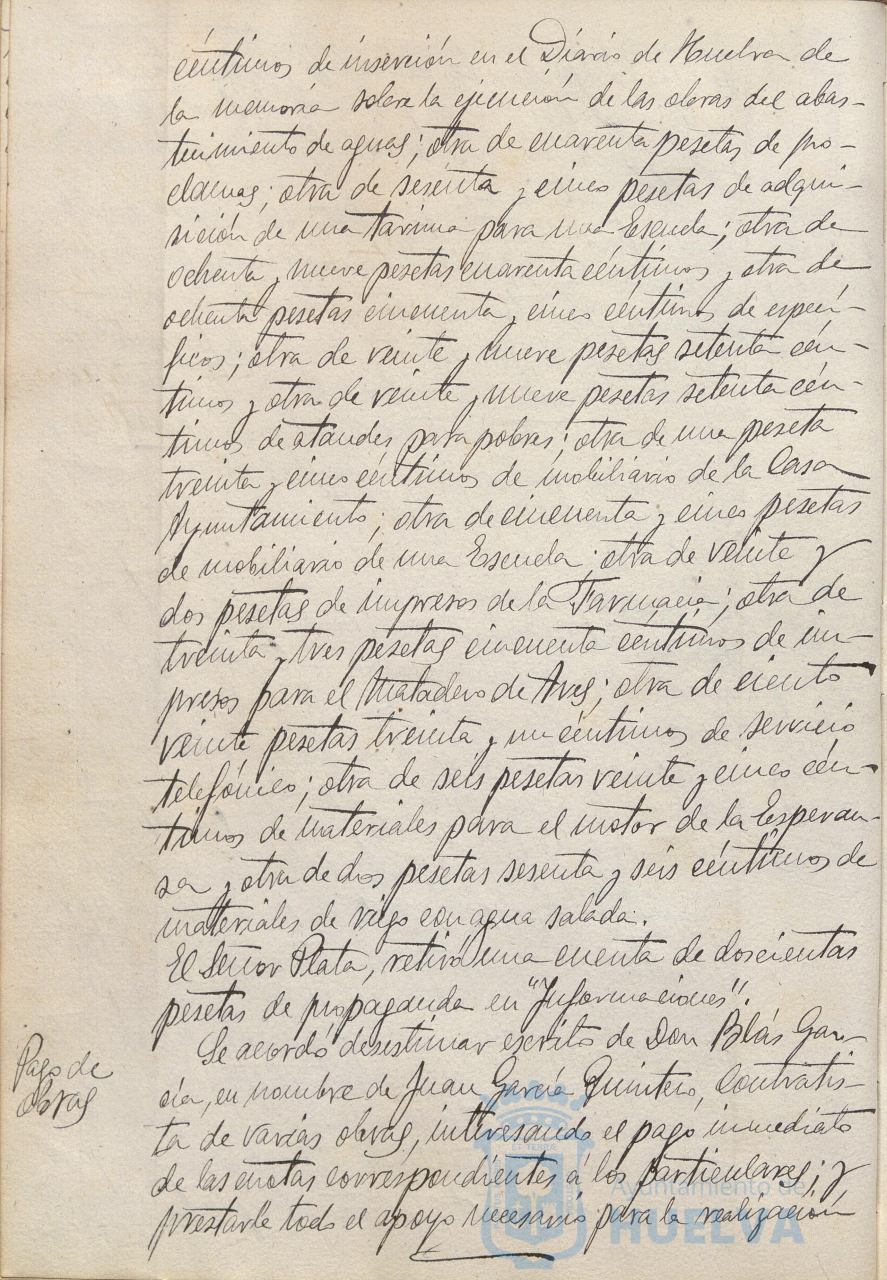 céntimos de inserción en el Diario de Huelva de
la memoria sobre la ejecución de las obras del abas-
tecimiento de aguas; otra de cuarenta pesetas de pro-
clamas; otra de sesenta y cinco pesetas de adqui-
sición de una tarima para una Escuela; otra de
ochenta y nueve pesetas cuarenta céntimos y otra de
ochenta pesetas cincuenta y cinco céntimos de especí-
ficos; otra de veinte y nueve pesetas setenta cén-
timos y otra de veinte y nueve pesetas setenta cén-
timos de ataudes para pobres; otra de una peseta
treinta y cinco céntimos de mobiliario de la Casa
Ayuntamiento; otra de cincuenta y cinco pesetas
de mobiliario de una Escuela; otra de veinte y
dos pesetas de impresos de la Farmacia; otra de
treinta y tres pesetas cincuenta céntimos de im-
presos para el Matadero de Aves; otra de ciento
veinte pesetas treinta y un céntimos de servicio
telefónico; otra de seis pesetas veinte y cinco cén-
timos de materiales para el motor de la Esperan-
sa y otra de dos pesetas sesenta y seis céntimos de
materiales de riego con agua salada.
El Señor Plata, retiró una cuenta de doscientas
pesetas de propaganda en "Informaciones".
Pago de
obras
Se acordó desestimar escrito de Don Blás Gar-
cía, en nombre de Juan García Quintero, Contratis-
ta de varias obras, interesando el pago inmediato
de las cuotas correspondientes á los particulares; y
prestarle todo el apoyo necesario para la realización
Ayuntamiento de
HUELVA